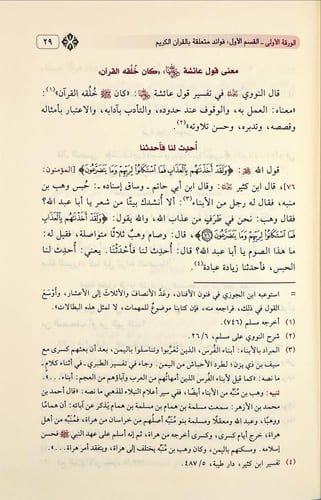 الورقة الأولى - القسم الأول: فوائد متعلقة بالقرآن الكريم
٢٩
معنى قول عائشة رضي الله عنها: «كان خُلقه القرآن»
قال النووي في تفسير قول عائشة: «كان ﷺ خُلُقه القرآن»(١):
«معناه: العمل به، والوقوف عند حدوده، والتأدب بآدابه، والاعتبار بأمثاله
وقصصه، وتدبره، وحسن تلاوته»(٢).
أُحدِث لنا فأحدثنا
قول الله: ﴿وَلَقَدْ أَخَذْنَاهُم بِالْعَذَابِ فَمَا اسْتَكَانُوا لِرَبِّهِمْ وَمَا يَتَضَرَّعُونَ﴾ [المؤمنون:
٧٦]، قال ابن كثير: «وقال ابن أبي حاتم - وساق إسناده -: حُبس وهب بن
منبه، فقال له رجل من الأبناء(٣): ألا أنشدك بيتًا من شعر يا أبا عبد الله؟
فقال وهب: نحن في طَرَفٍ من عذاب الله، والله يقول: ﴿وَلَقَدْ أَخَذْنَاهُم بِالْعَذَابِ
فَمَا اسْتَكَانُوا لِرَبِّهِمْ وَمَا يَتَضَرَّعُونَ﴾ قال: وصام وهبٌ ثلاثًا متواصلة، فقيل له:
ما هذا الصوم يا أبا عبد الله؟ قال: أُحدِث لنا فأَحْدَثْنَا. يعني: أُحدِث لنا
الحبس، فأحدثنا زيادة عبادة»(٤).
= استوعبه ابن الجوزي في فنون الأفنان، وعَدَّ الأنصاف والأثلاث إلى الأعشار، وأوْسَعَ
القول في ذلك، فراجعه منه، فإن كتابنا موضوعٌ للمهمات، لا لمثل هذه البطالات».
(١) أخرجه مسلم (٧٤٦).
(٢) شرح النووي على مسلم، ٢٦/٦.
(٣) المراد بالأبناء: أبناء الفُرس، الذين تَعَرَّبُوا وتناسلوا باليمن، بعد أن بعثهم كسرى مع
سيف بن ذي يزن؛ لطرد الأحباش من اليمن. وجاء في تفسير الطبري - في أثناء كلام -
ما نصه: «كما قيل لأبناء الفرس الذين أمهاتُهم من العرب وآباؤهم من العجم: أبناء...».
تنبيه: وهب بن مُنَبِّه من الأبناء أيضًا، ففي سير أعلام النبلاء للذهبي ما نصه: «قال أحمد بن
محمد بن الأزهر: سمعت مسلمة بن همام بن مسلمة بن همام يذكر عن آبائه: أن همامًا
ووهبًا، وعبد الله ومعقلًا ومسلمة بنو مُنَبِّه أصلُهم من خراسان من هراة، فمُنَبِّه من أهل
هراة، خرج أيام كسرى، وكسرى أخرجه من هراة، ثم إنه أسلم على عهد النبي ﷺ فحسن
إسلامه. ومسكنهم باليمن، وكان وهب بن مُنَبِّه يختلف إلى هراة، ويتفقد أمر هراة...».
(٤) تفسير ابن كثير، دار طيبة، ٤٨٧/٥.